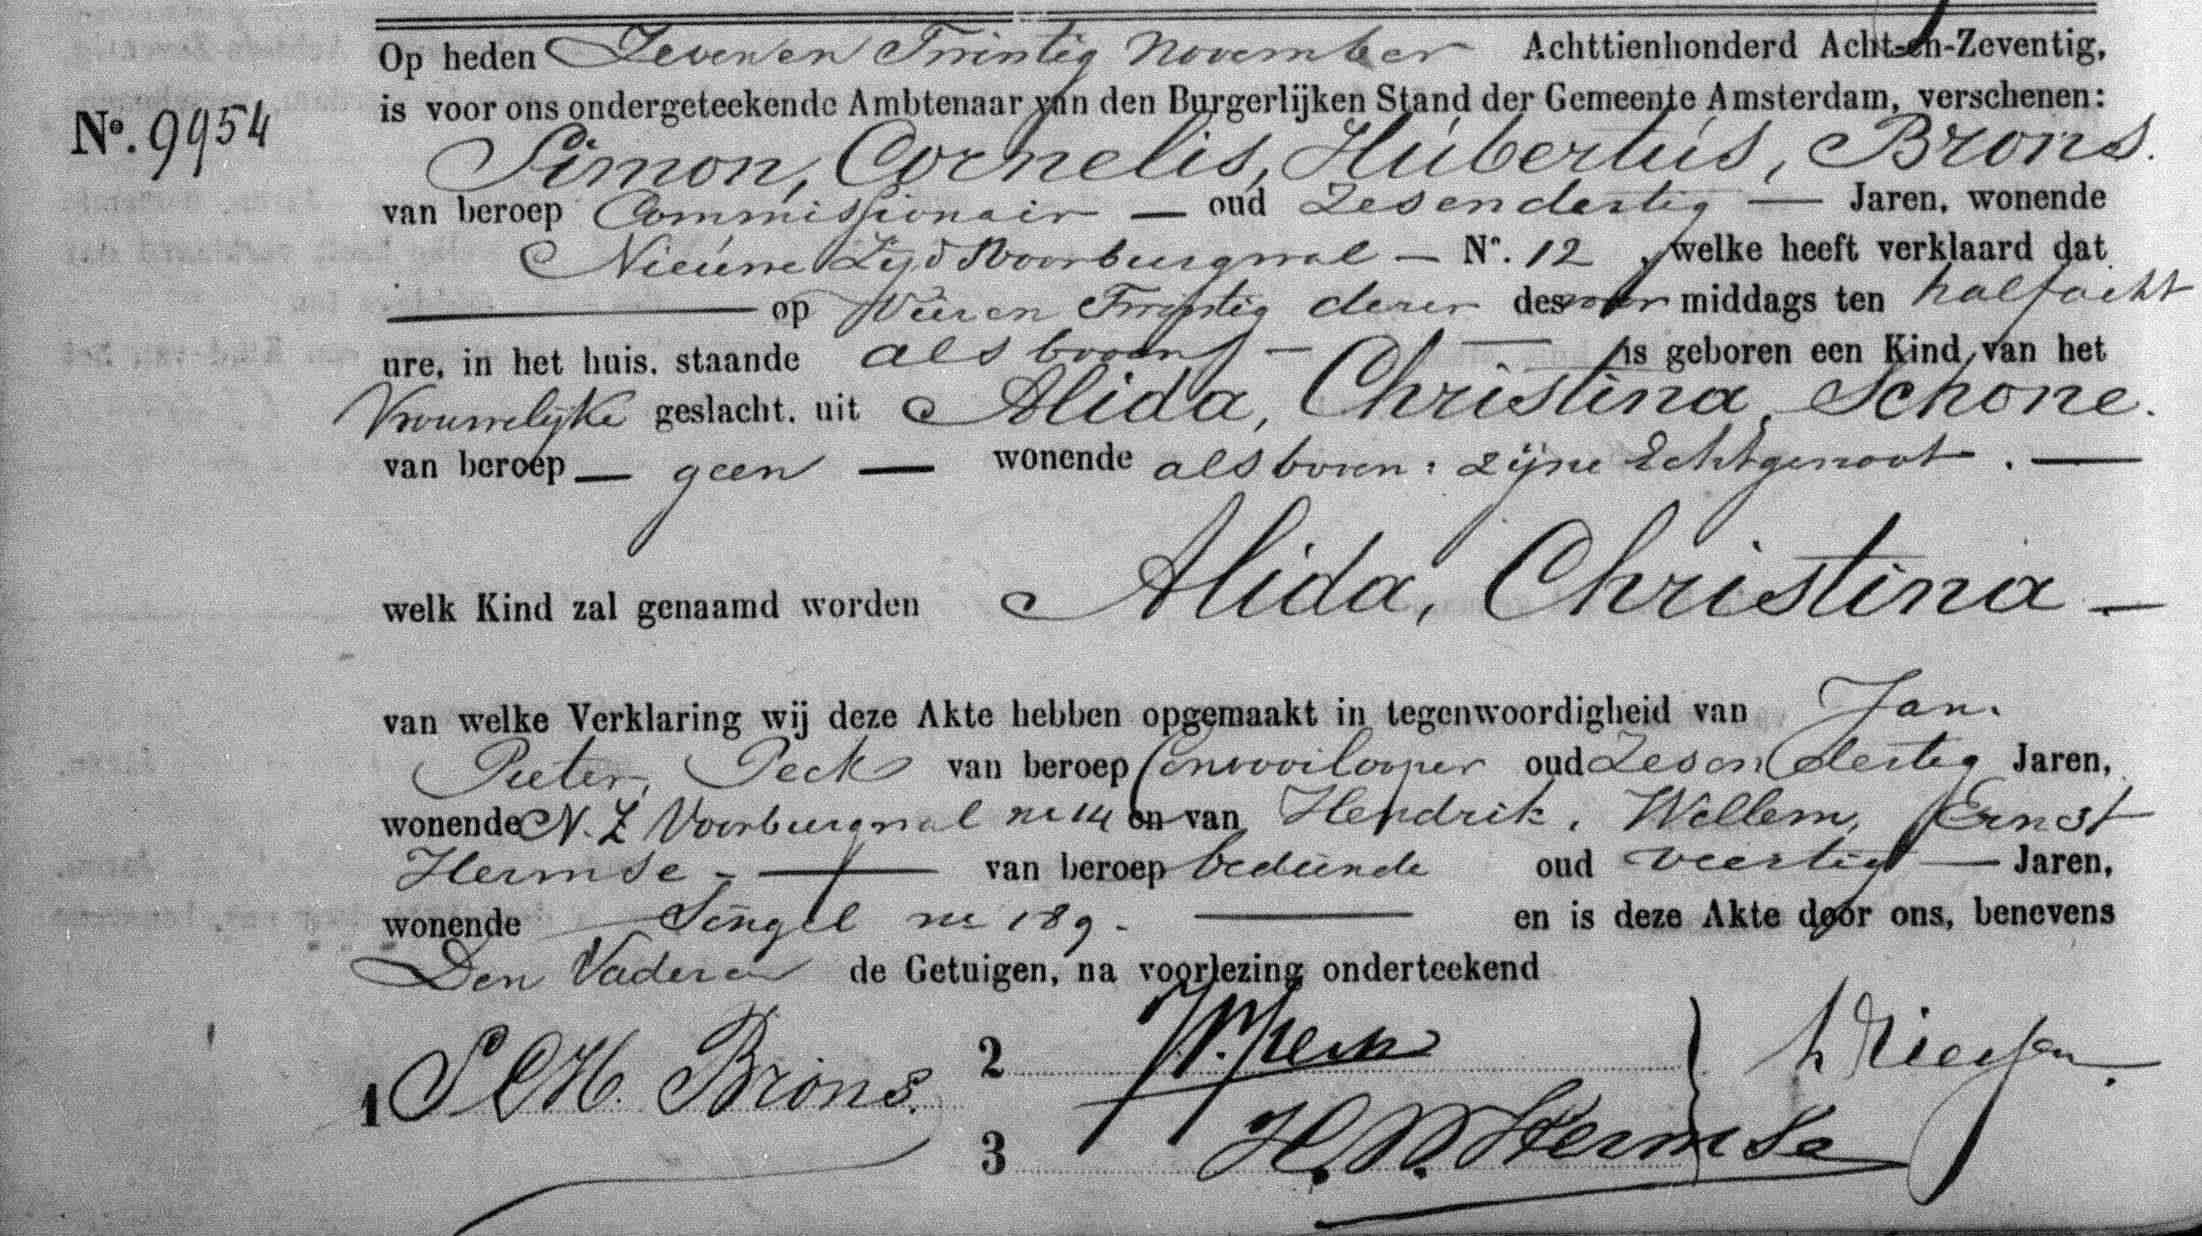 Op heden Zeven en Twintig November Achttienhonderd Acht-en-Zeventig,
is voor ons ondergeteekende Ambtenaar van den Burgerlijken Stand der Gemeente Amsterdam, verschenen:
No. 9954
Simon, Cornelis, Hubertus, Brons.
van beroep Commissionair — oud Zesendertig — Jaren, wonende
Nieuwe Zyds Voorburgwal — No. 12, welke heeft verklaard dat
— op Vier en Twintig dezer des voor middags ten half acht
ure, in het huis, staande als boven — — is geboren een Kind van het
Vrouwelyke geslacht, uit Alida, Christina, Schone.
van beroep — geen — wonende als boven, zijne Echtgenoot. —
welk Kind zal genaamd worden Alida, Christina —
van welke Verklaring wij deze Akte hebben opgemaakt in tegenwoordigheid van Jan,
Pieter, Peck van beroep Convooilooper oud Zesendertig Jaren,
wonende N. Z. Voorburgwal no 14 en van Hendrik, Willem, Ernst
Hermse — van beroep bediende oud veertig — Jaren,
wonende Singel no 189. — en is deze Akte door ons, benevens
Den Vader en de Getuigen, na voorlezing onderteekend
1 S C H. Brons. 2 J.P. Peck
3 H. W. Hermse